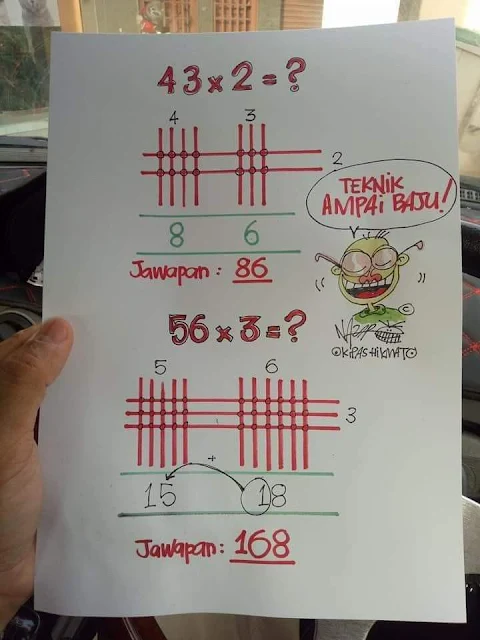 43 x 2 = ?
4 3
2
TEKNIK
AMPAI BAJU!
8 6
Jawapan : 86
©
56 x 3 = ?
5 6
3
+
15 18
Jawapan : 168